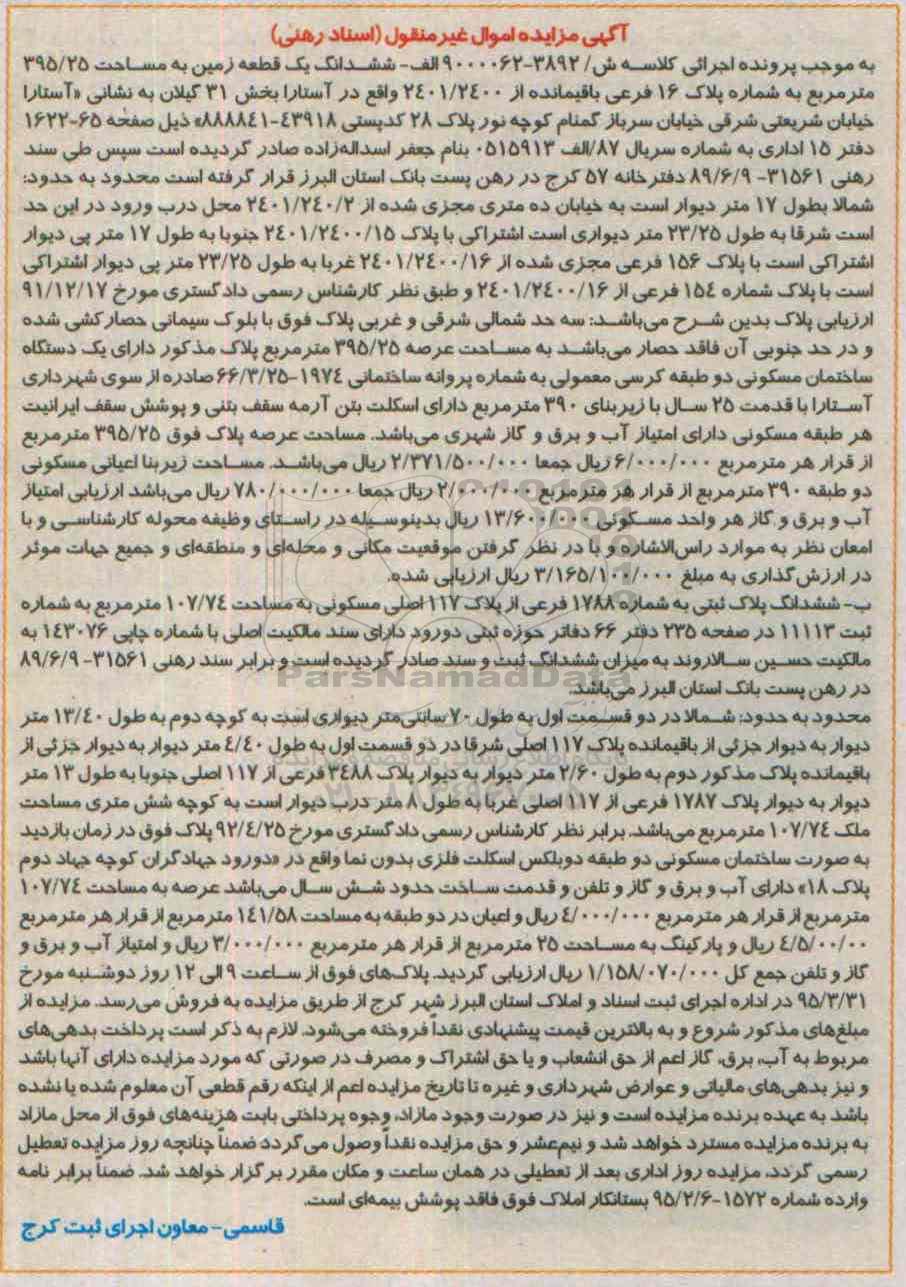 آگهی مزایده اموال غیرمنقول (اسناد رهنی)
به موجب پرونده اجرائی کلاسه ش/ ۳۸۹۲-۹۰۰۰۰۶۲ الف- ششدانگ یک قطعه زمین به مساحت ۳۹۵/۲۵
مترمربع به شماره پلاک ۱۶ فرعی باقیمانده از ۲۴۰۱/۲۴۰۰ واقع در آستارا بخش ۳۱ گیلان به نشانی «آستارا
خیابان شریعتی شرقی خیابان سرباز گمنام کوچه نور پلاک ۲۸ کدپستی ۴۳۹۱۸-۸۸۸۸۴۱» ذیل صفحه ۶۵-۱۶۲۲
دفتر ۱۵ اداری به شماره سریال ۸۷/الف ۰۵۱۵۹۱۳ بنام جعفر اسداله‌زاده صادر گردیده است سپس طی سند
رهنی ۳۱۵۶۱- ۸۹/۶/۹ دفترخانه ۵۷ کرج در رهن پست بانک استان البرز قرار گرفته است محدود به حدود:
شمالا بطول ۱۷ متر دیوار است به خیابان ده متری مجزی شده از ۲۴۰۱/۲۴۰/۲ محل درب ورود در این حد
است شرقا به طول ۲۳/۲۵ متر دیواری است اشتراکی با پلاک ۲۴۰۱/۲۴۰۰/۱۵ جنوبا به طول ۱۷ متر پی دیوار
اشتراکی است با پلاک ۱۵۶ فرعی مجزی شده از ۲۴۰۱/۲۴۰۰/۱۶ غربا به طول ۲۳/۲۵ متر پی دیوار اشتراکی
است با پلاک شماره ۱۵۴ فرعی از ۲۴۰۱/۲۴۰۰/۱۶ و طبق نظر کارشناس رسمی دادگستری مورخ ۹۱/۱۲/۱۷
ارزیابی پلاک بدین شرح می‌باشد: سه حد شمالی شرقی و غربی پلاک فوق با بلوک سیمانی حصارکشی شده
و در حد جنوبی آن فاقد حصار می‌باشد به مساحت عرصه ۳۹۵/۲۵ مترمربع پلاک مذکور دارای یک دستگاه
ساختمان مسکونی دو طبقه کرسی معمولی به شماره پروانه ساختمانی ۱۹۷۴-۶۶/۳/۲۵ صادره از سوی شهرداری
آستارا با قدمت ۲۵ سال با زیربنای ۳۹۰ مترمربع دارای اسکلت بتن آرمه سقف بتنی و پوشش سقف ایرانیت
هر طبقه مسکونی دارای امتیاز آب و برق و گاز شهری می‌باشد. مساحت عرصه پلاک فوق ۳۹۵/۲۵ مترمربع
از قرار هر مترمربع ۶/۰۰۰/۰۰۰ ریال جمعا ۲/۳۷۱/۵۰۰/۰۰۰ ریال می‌باشد. مساحت زیربنا اعیانی مسکونی
دو طبقه ۳۹۰ مترمربع از قرار هر مترمربع ۲/۰۰۰/۰۰۰ ریال جمعا ۷۸۰/۰۰۰/۰۰۰ ریال می‌باشد ارزیابی امتیاز
آب و برق و گاز هر واحد مسکونی ۱۳/۶۰۰/۰۰۰ ریال بدینوسیله در راستای وظیفه محوله کارشناسی و با
امعان نظر به موارد راس‌الاشاره و با در نظر گرفتن موقعیت مکانی و محله‌ای و منطقه‌ای و جمیع جهات موثر
در ارزش‌گذاری به مبلغ ۳/۱۶۵/۱۰۰/۰۰۰ ریال ارزیابی شده.
ب- ششدانگ پلاک ثبتی به شماره ۱۷۸۸ فرعی از پلاک ۱۱۷ اصلی مسکونی به مساحت ۱۰۷/۷۴ مترمربع به شماره
ثبت ۱۱۱۱۳ در صفحه ۲۳۵ دفتر ۶۶ دفاتر حوزه ثبتی دورود دارای سند مالکیت اصلی با شماره چاپی ۱۴۳۰۷۶ به
مالکیت حسین سالاروند به میزان ششدانگ ثبت و سند صادر گردیده است و برابر سند رهنی ۳۱۵۶۱- ۸۹/۶/۹
در رهن پست بانک استان البرز می‌باشد.
محدود به حدود: شمالا در دو قسمت اول به طول ۷۰ سانتی‌متر دیواری است به کوچه دوم به طول ۱۳/۴۰ متر
دیوار به دیوار جزئی از باقیمانده پلاک ۱۱۷ اصلی شرقا در دو قسمت اول به طول ۴/۴۰ متر دیوار به دیوار جزئی از
باقیمانده پلاک مذکور دوم به طول ۲/۶۰ متر دیوار به دیوار پلاک ۳۴۸۸ فرعی از ۱۱۷ اصلی جنوبا به طول ۱۳ متر
دیوار به دیوار پلاک ۱۷۸۷ فرعی از ۱۱۷ اصلی غربا به طول ۸ متر درب دیوار است به کوچه شش متری مساحت
ملک ۱۰۷/۷۴ مترمربع می‌باشد. برابر نظر کارشناس رسمی دادگستری مورخ ۹۲/۴/۲۵ پلاک فوق در زمان بازدید
به صورت ساختمان مسکونی دو طبقه دوبلکس اسکلت فلزی بدون نما واقع در «دورود جهادگران کوچه جهاد دوم
پلاک ۱۸» دارای آب و برق و گاز و تلفن و قدمت ساخت حدود شش سال می‌باشد عرصه به مساحت ۱۰۷/۷۴
مترمربع از قرار هر مترمربع ۴/۰۰۰/۰۰۰ ریال و اعیان در دو طبقه به مساحت ۱۴۱/۵۸ مترمربع از قرار هر مترمربع
۴/۵/۰۰/۰۰ ریال و پارکینگ به مساحت ۲۵ مترمربع از قرار هر مترمربع ۳/۰۰۰/۰۰۰ ریال و امتیاز آب و برق و
گاز و تلفن جمع کل ۱/۱۵۸/۰۷۰/۰۰۰ ریال ارزیابی گردید. پلاک‌های فوق از ساعت ۹ الی ۱۲ روز دوشنبه مورخ
۹۵/۳/۳۱ در اداره اجرای ثبت اسناد و املاک استان البرز شهر کرج از طریق مزایده به فروش می‌رسد. مزایده از
مبلغ‌های مذکور شروع و به بالاترین قیمت پیشنهادی نقداً فروخته می‌شود. لازم به ذکر است پرداخت بدهی‌های
مربوط به آب، برق، گاز اعم از حق انشعاب و یا حق اشتراک و مصرف در صورتی که مورد مزایده دارای آنها باشد
و نیز بدهی‌های مالیاتی و عوارض شهرداری و غیره تا تاریخ مزایده اعم از اینکه رقم قطعی آن معلوم شده یا نشده
باشد به عهده برنده مزایده است و نیز در صورت وجود مازاد، وجوه پرداختی بابت هزینه‌های فوق از محل مازاد
به برنده مزایده مسترد خواهد شد و نیم‌عشر و حق مزایده نقداً وصول می‌گردد ضمناً چنانچه روز مزایده تعطیل
رسمی گردد، مزایده روز اداری بعد از تعطیلی در همان ساعت و مکان مقرر برگزار خواهد شد. ضمناً برابر نامه
وارده شماره ۱۵۷۲-۹۵/۲/۶ بستانکار املاک فوق فاقد پوشش بیمه‌ای است.
قاسمی- معاون اجرای ثبت کرج
ParsNamadData